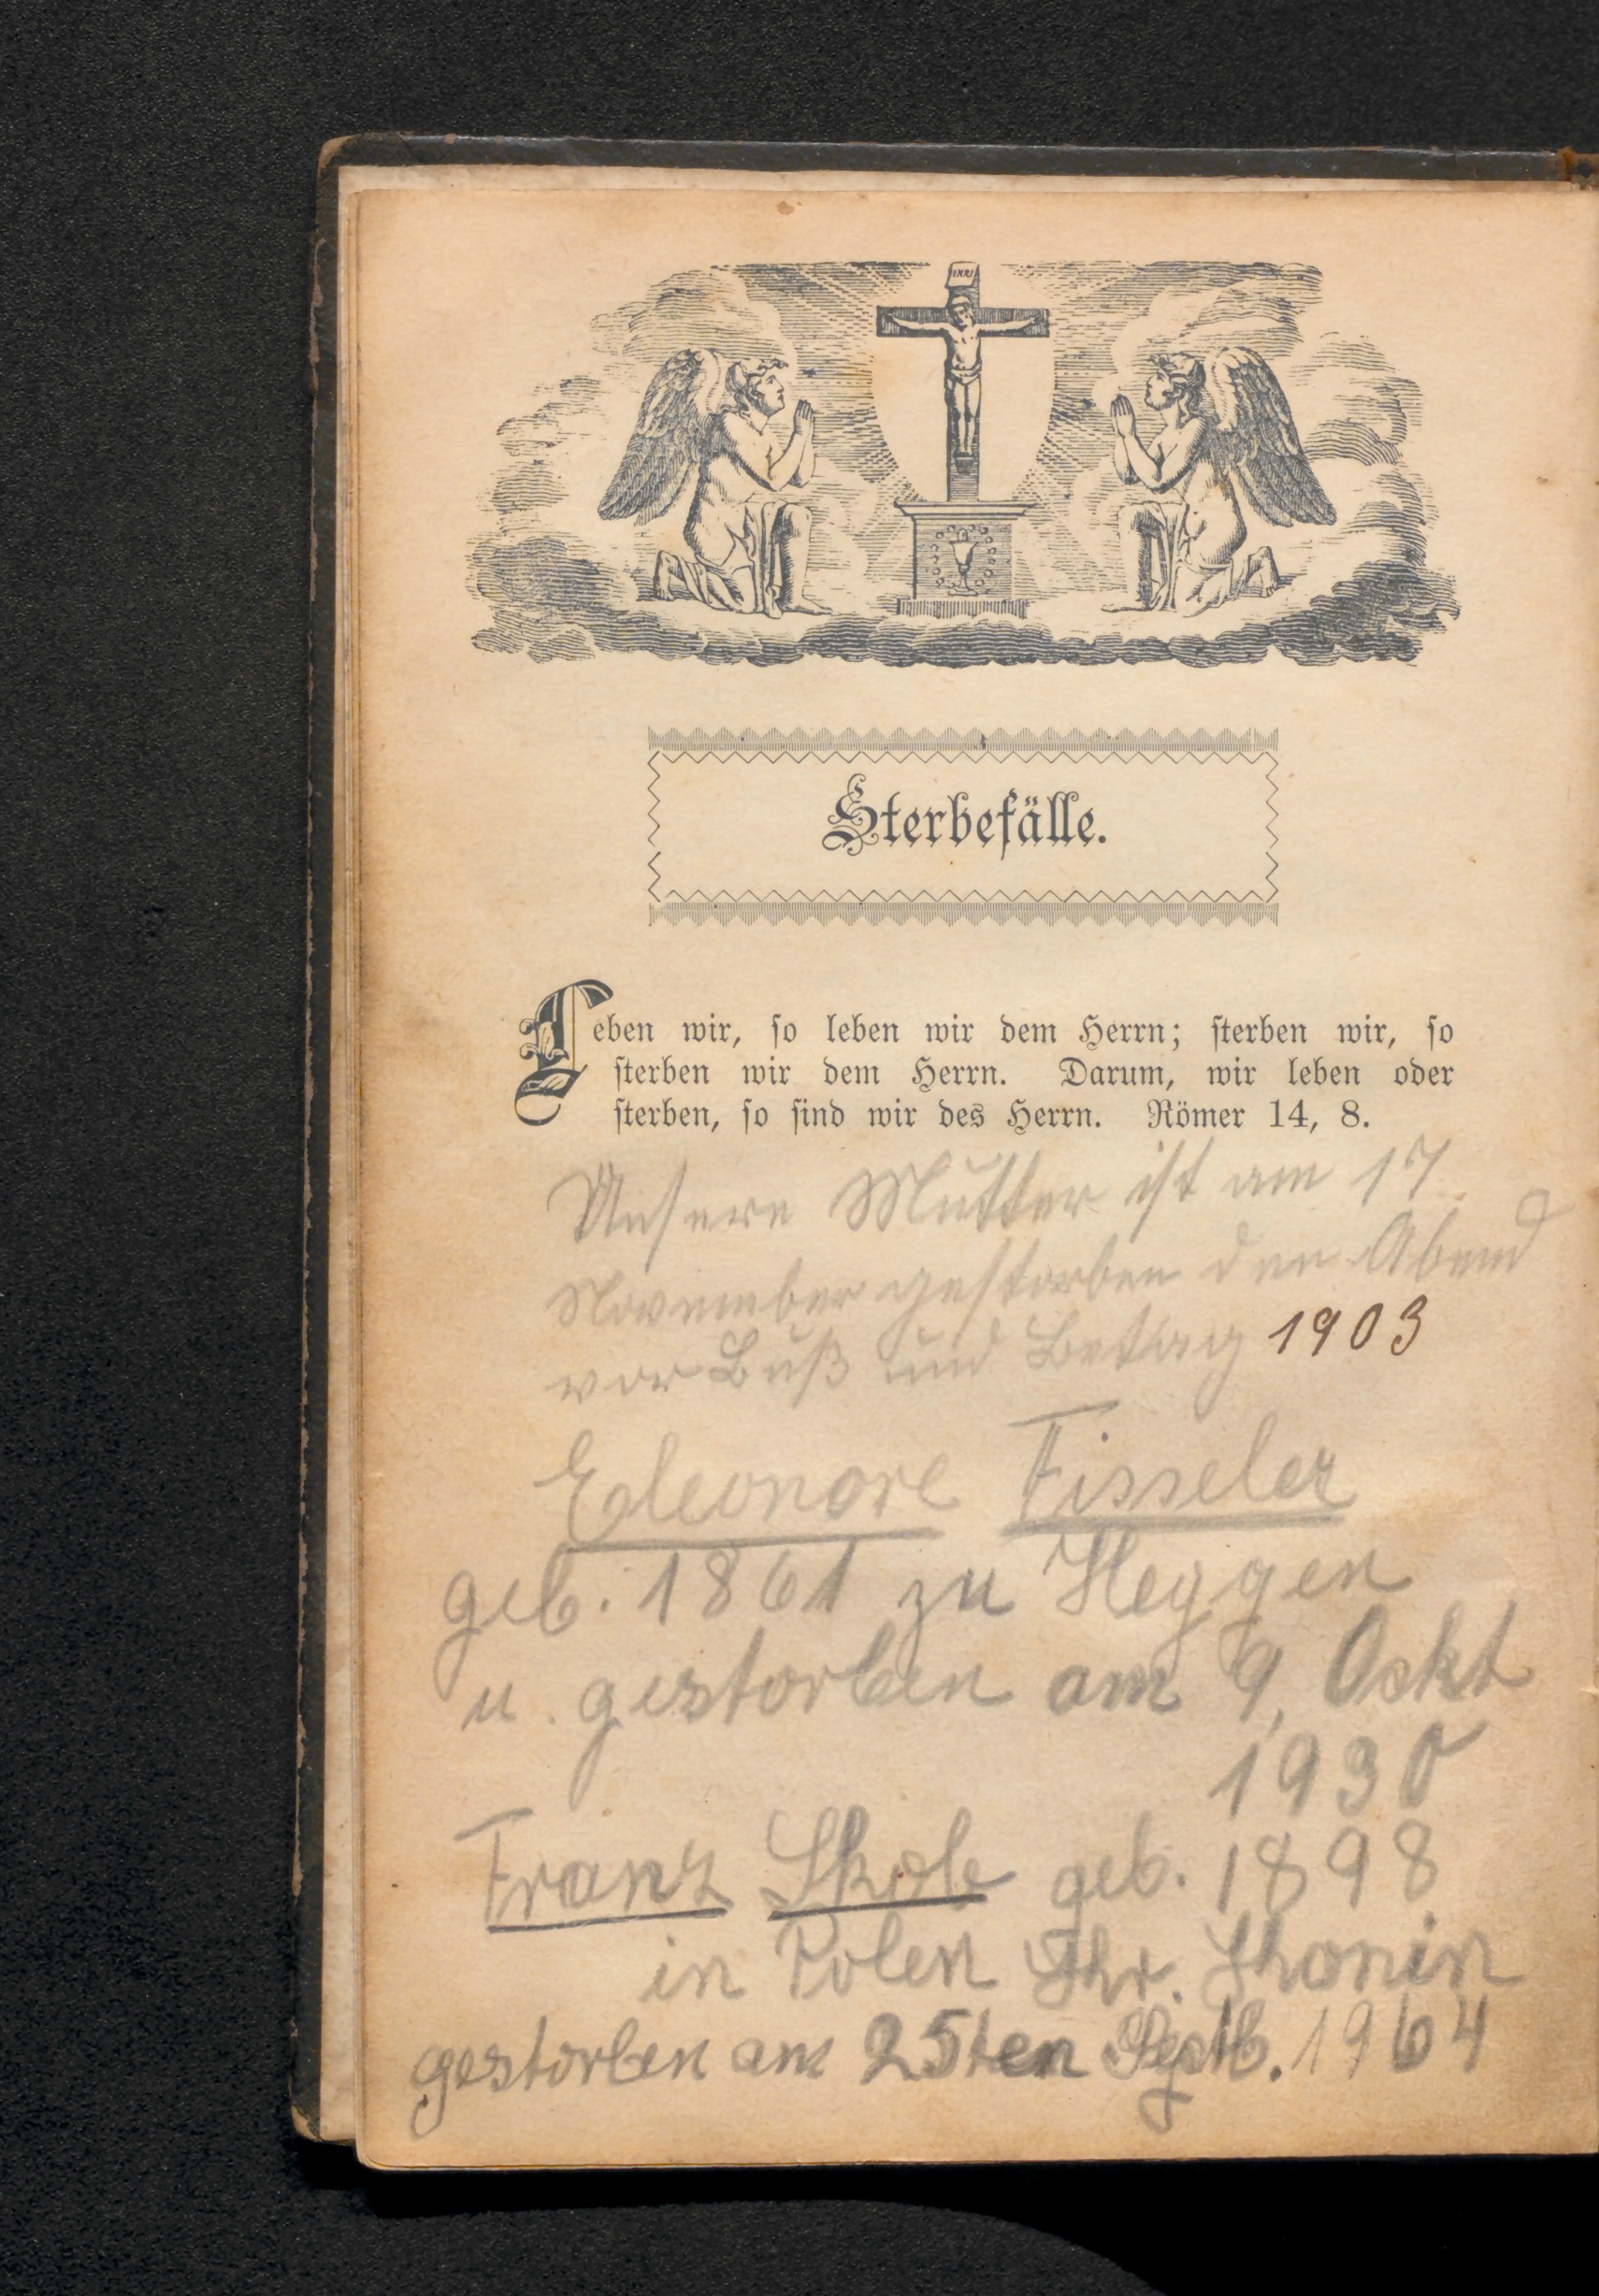 INRI
Sterbefälle.
Leben wir, so leben wir dem Herrn; sterben wir, so
sterben wir dem Herrn. Darum, wir leben oder
sterben, so sind wir des Herrn. Römer 14, 8.
Unsere Mutter ist am 17.
November gestorben den Abend
vor Buß und Bettag 1903
Eleonore Fisseler
geb. 1861 zu Heggen
u. gestorben am 9, Ockt
1930
Franz Skole geb. 1898
in Polen Khr. Khonin
gestorben am 25ten Septb. 1964